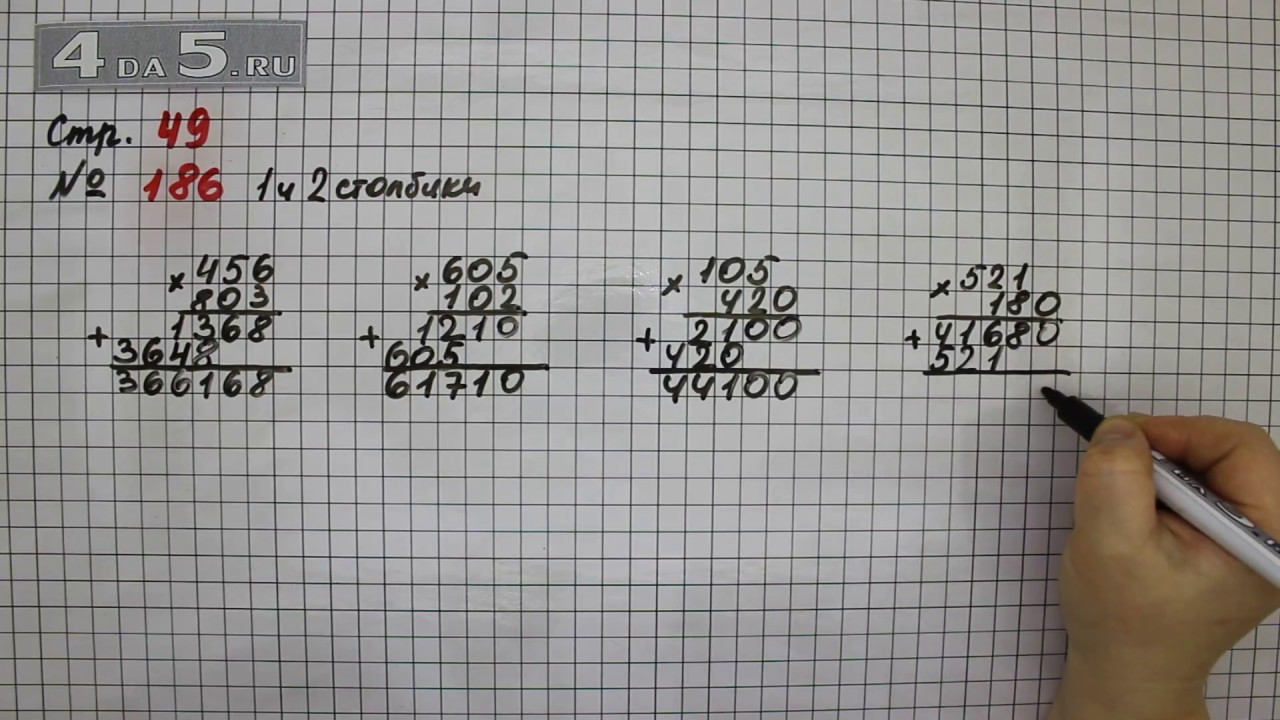 4 DA 5.RU
Стр. 49
№ 186 1 и 2 столбики
× 456
803
+ 1368
3648
366168
× 605
102
+ 1210
605
61710
× 105
420
+ 2100
420
44100
× 521
180
+ 41680
521